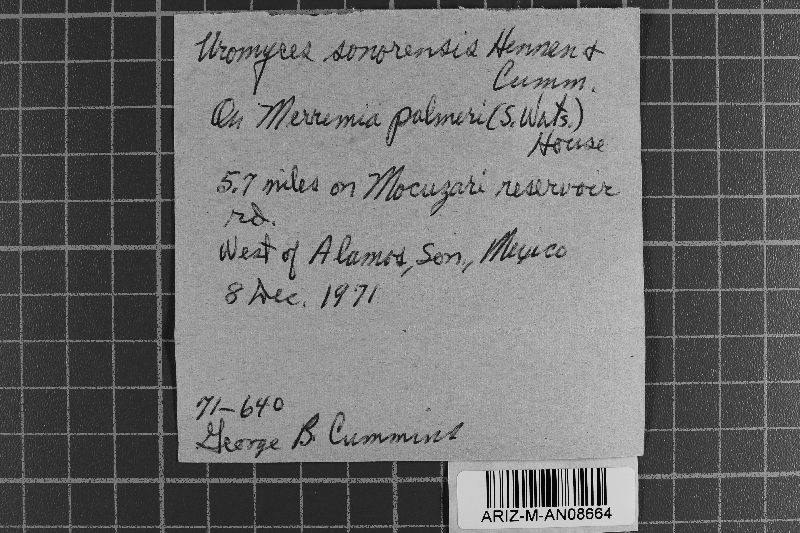 Uromyces sonorensis Hennen &
Cumm.
On Merremia palmeri (S. Wats.)
House
5.7 miles on Mocuzari reservoir
rd.
West of Alamos, Son., Mexico
8 Dec. 1971
71-640
George B. Cummins
ARIZ-M-AN08664